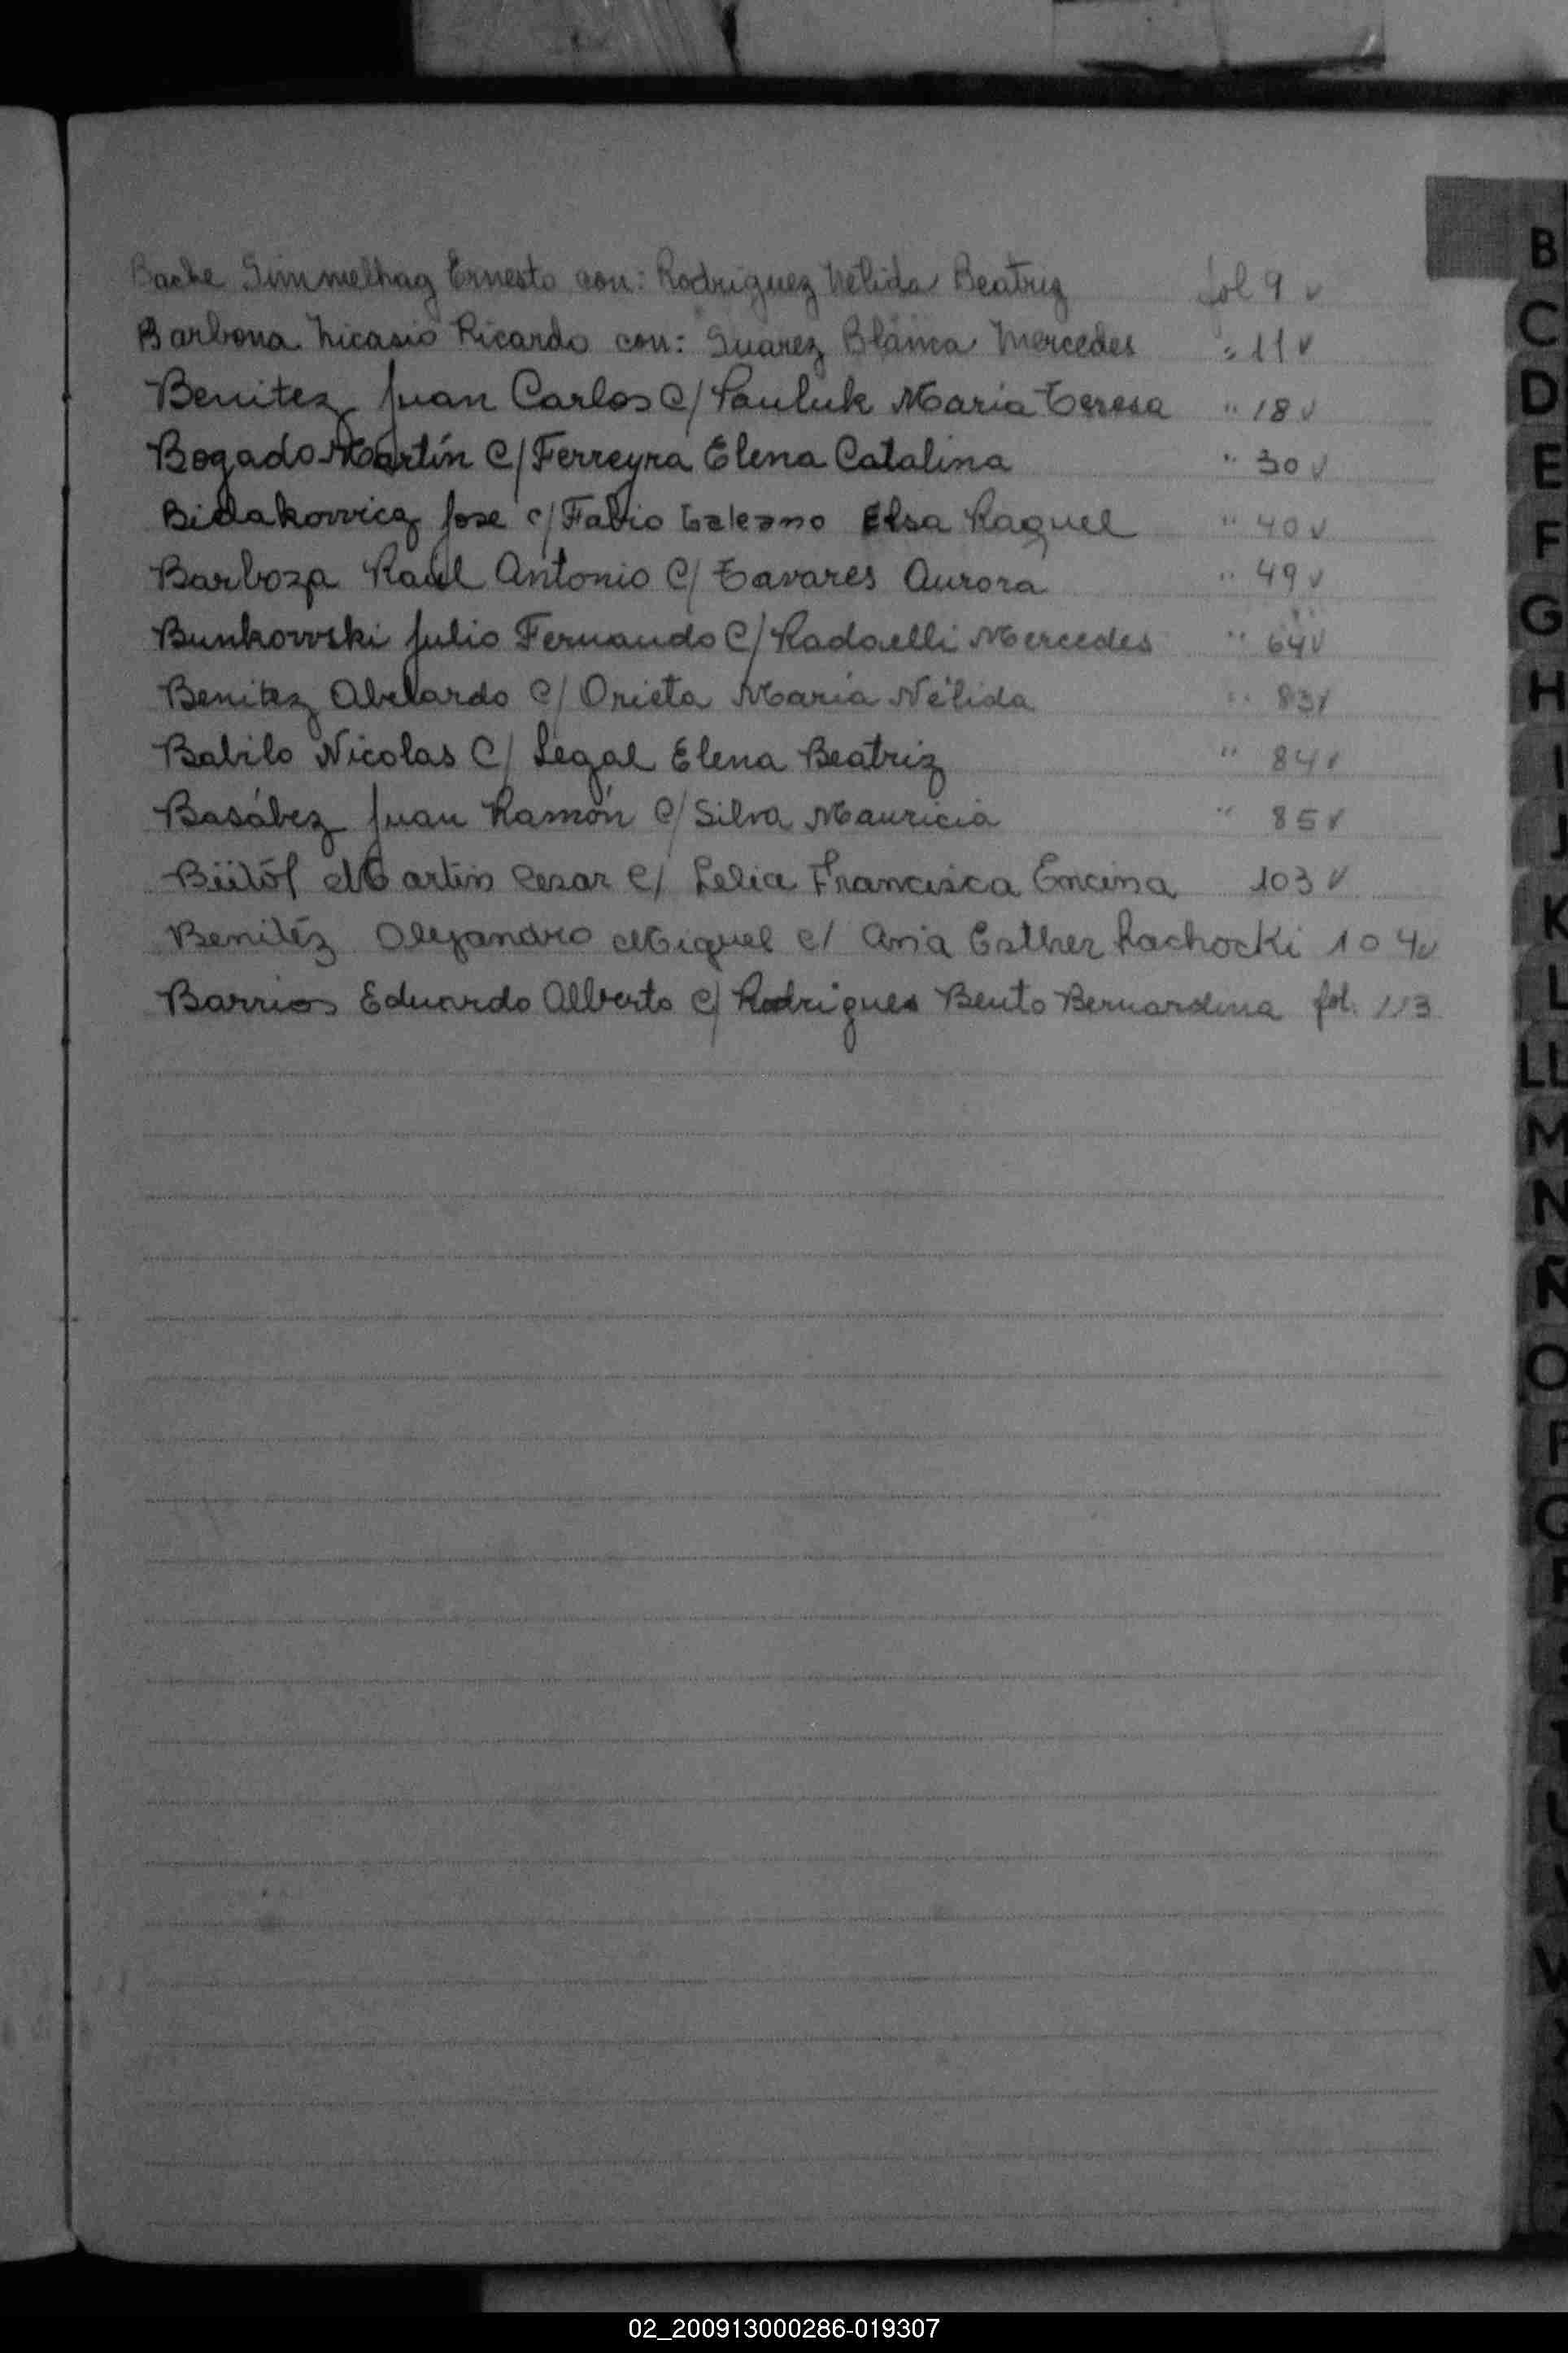 Bache Simmelhag Ernesto con: Rodriguez Nélida Beatriz fol 9 v
Barbona Nicasio Ricardo con: Suarez Blanca Mercedes " 11 v
Benitez Juan Carlos C/ Pauluk Maria Teresa " 18 v
Bogado Martín C/ Ferreyra Elena Catalina " 30 v
Bidakowicz Jose c/ Fabio Galeano Elsa Raquel " 40 v
Barboza Raúl Antonio C/ Tavares Aurora " 49 v
Bunkowski Julio Fernando C/ Radaelli Mercedes " 64 v
Benitez Abelardo C/ Orieta María Nélida " 83 v
Babilo Nicolas C/ Legal Elena Beatriz " 84 v
Basábez Juan Ramón C/ Silva Mauricia " 85 v
Martin Cesar C/ Lelia Francisca Encina 103 v
Benitéz Alejandro Miguel c/ Ana Esther Rachocki 104 v
Barrios Eduardo Alberto C/ Rodrigues Bento Bernardina fol. 113
B
C
D
E
F
G
H
I
J
K
L
LL
M
N
Ñ
O
P
Q
02_200913000286-019307